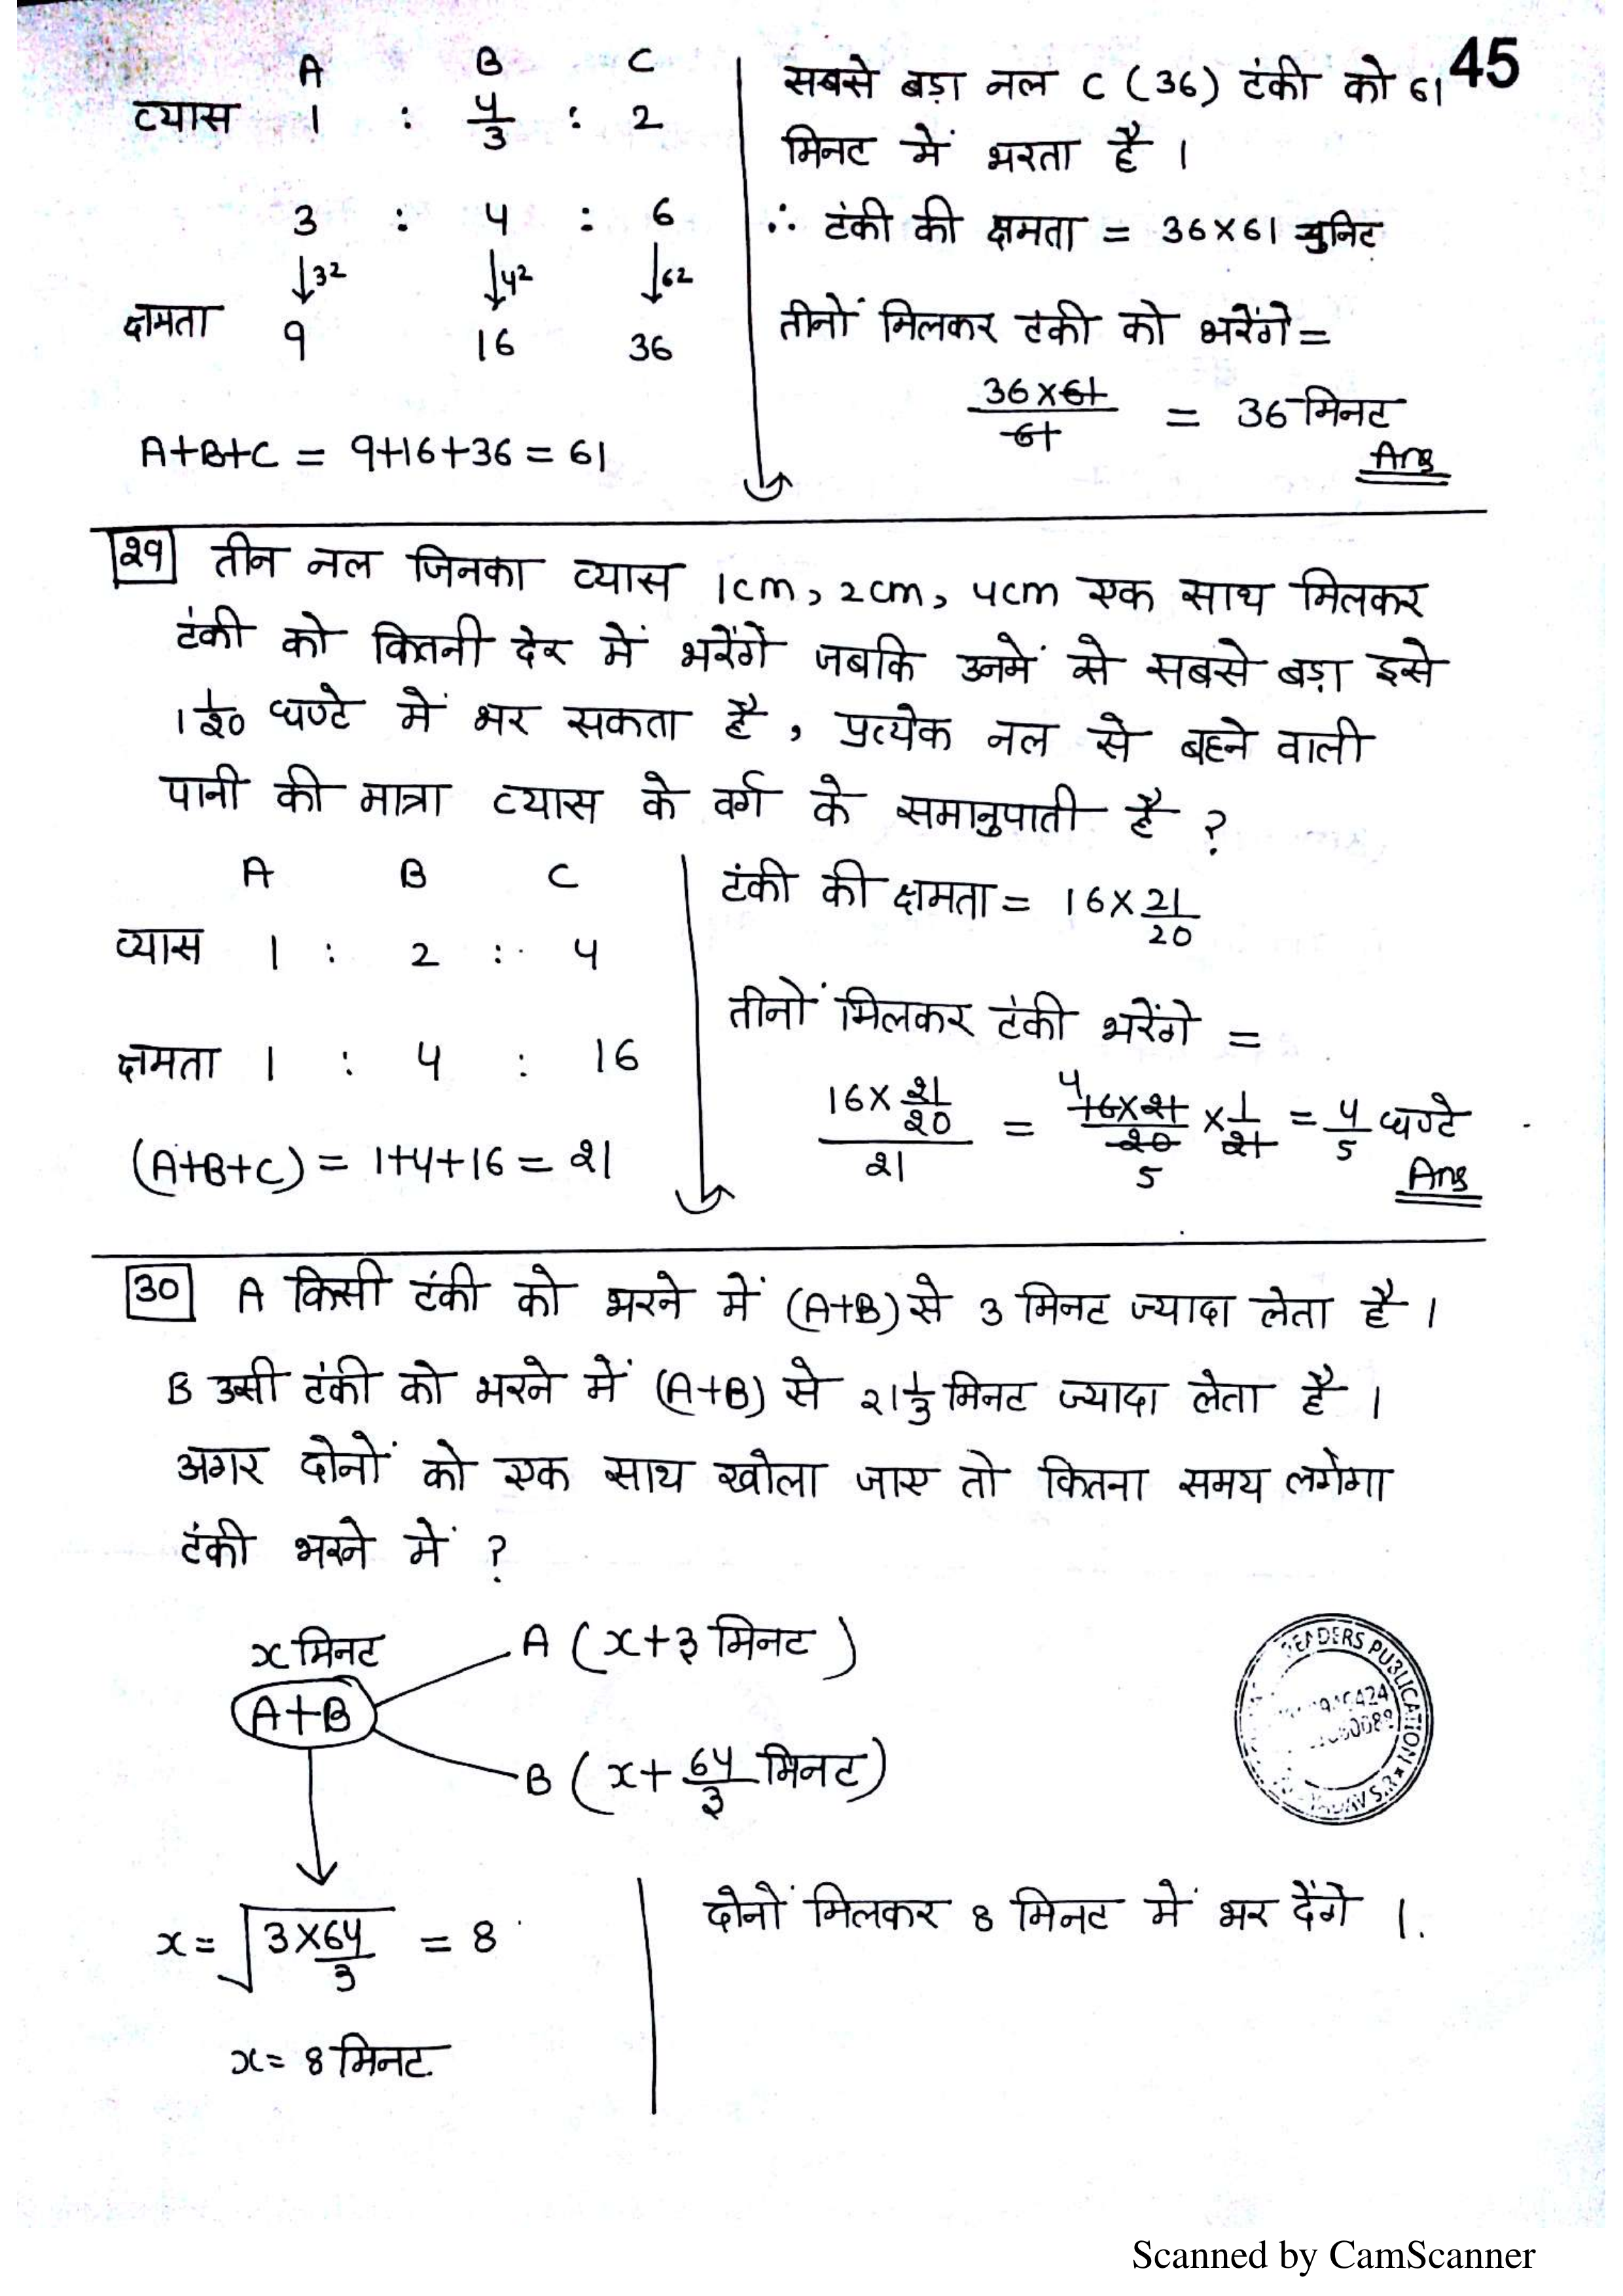 45
A B C
व्यास 1 : 4/3 : 2
3 : 4 : 6
↓3² ↓4² ↓6²
क्षमता 9 16 36
A+B+C = 9+16+36 = 61
सबसे बड़ा नल C (36) टंकी को 61
मिनट में भरता है ।
∴ टंकी की क्षमता = 36×61 युनिट
तीनों मिलकर टंकी को भरेंगे =
36×61/61 = 36 मिनट
Ans
29 तीन नल जिनका व्यास 1cm, 2cm, 4cm एक साथ मिलकर
टंकी को कितनी देर में भरेंगे जबकि उनमें से सबसे बड़ा इसे
1 1/20 घण्टे में भर सकता है, प्रत्येक नल से बहने वाली
पानी की मात्रा व्यास के वर्ग के समानुपाती है ?
A B C
व्यास 1 : 2 : 4
क्षमता 1 : 4 : 16
(A+B+C) = 1+4+16 = 21
टंकी की क्षमता = 16× 21/20
तीनों मिलकर टंकी भरेंगे =
16× 21/20 / 21 = 4 16×21/20 5 × 1/21 = 4/5 घण्टे
Ans
30 A किसी टंकी को भरने में (A+B) से 3 मिनट ज्यादा लेता है ।
B उसी टंकी को भरने में (A+B) से 21 1/3 मिनट ज्यादा लेता है ।
अगर दोनों को एक साथ खोला जाए तो कितना समय लगेगा
टंकी भरने में ?
x मिनट
A+B
A (x+3 मिनट)
B (x+ 64/3 मिनट)
x = √3×64/3 = 8
x = 8 मिनट
दोनों मिलकर 8 मिनट में भर देंगे ।
READERS PUBLICATION
Scanned by CamScanner